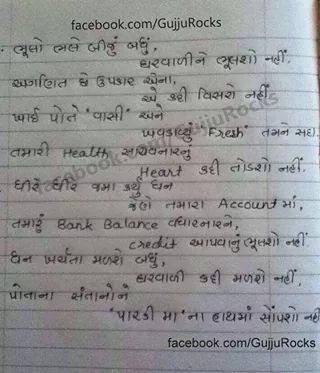 facebook.com/GujjuRocks
ભૂલો ભલે બીજું બધું,
ઘરવાળીને ભૂલશો નહીં.
અગણિત છે ઉપકાર એના,
એ કદી વિસરશો નહીં.
ખાઈ પોતે 'વાસી' અને
ખવડાવ્યું 'Fresh' તમને સદા
તમારી Health સાચવનારનું
Heart કદી તોડશો નહીં.
ધીરે ધીરે જમા કર્યું ધન
કેલો તમારા Account માં,
તમારું Bank Balance વધારનારને,
credit આપવાનું ભૂલશો નહીં
ધન ખર્ચતા મળશે બધું,
ઘરવાળી કદી મળશે નહીં,
પોતાના સંતાનોને
'પારકી મા' ના હાથમાં સોંપશો નહીં
facebook.com/GujjuRocks